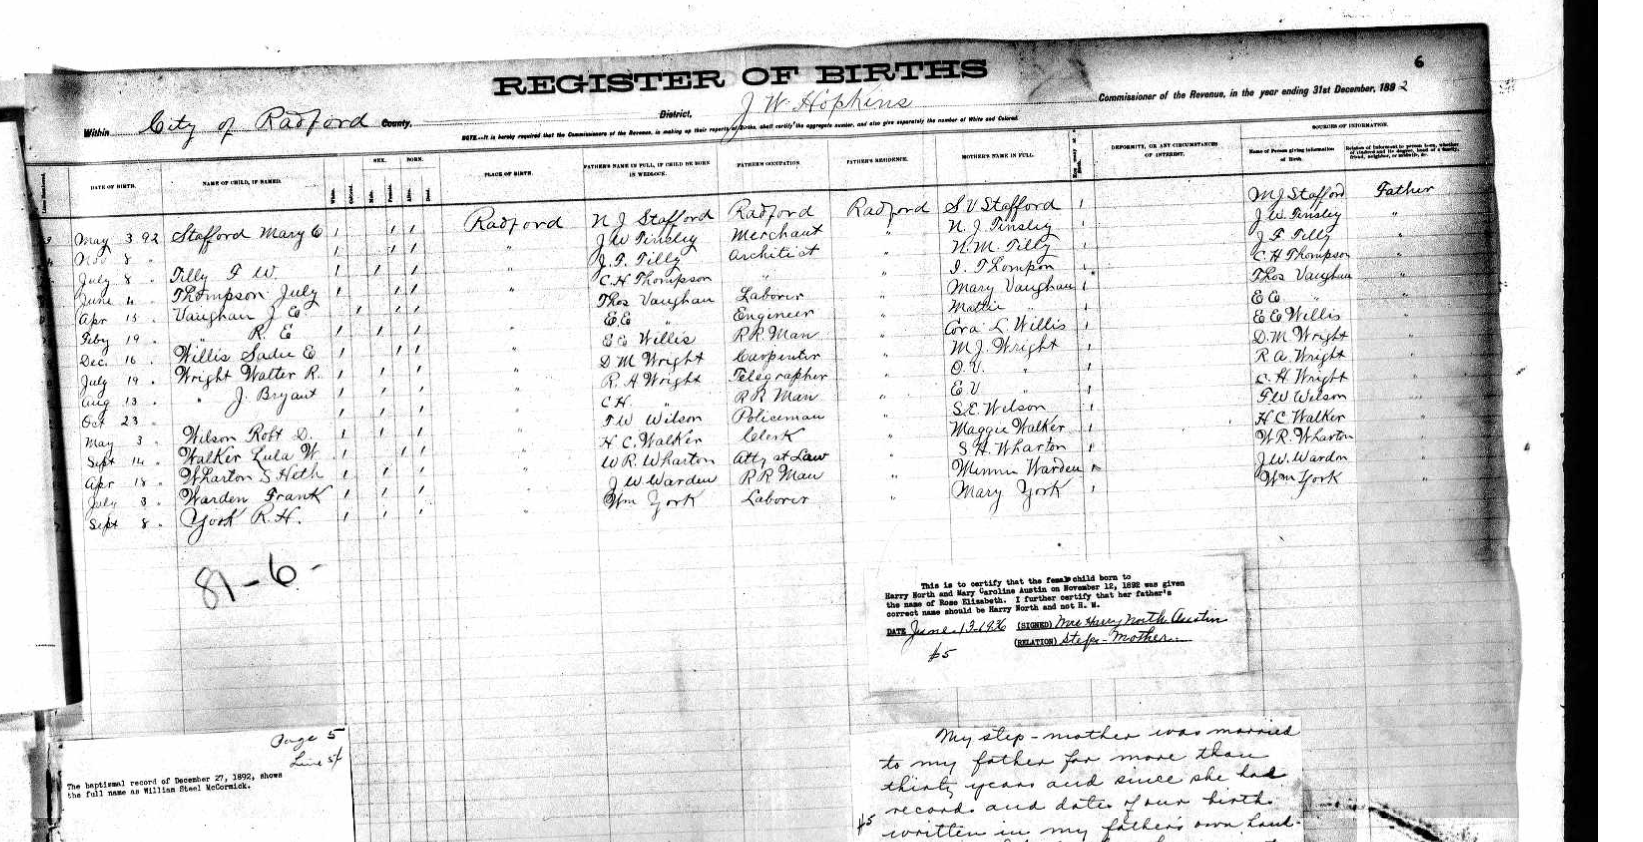 6
REGISTER OF BIRTHS
Within City of Radford County, District, J W Hopkins Commissioner of the Revenue, in the year ending 31st December, 1892
NOTE.—It is hereby required that the Commissioners of the Revenue, in making up their reports of Births, shall certify the aggregate number, and also give separately the number of White and Colored.
SEX. BORN. SOURCES OF INFORMATION.
DATE OF BIRTH. NAME OF CHILD, IF NAMED. White. Colored. Male. Female. Alive. Dead. PLACE OF BIRTH. FATHER'S NAME IN FULL, IF CHILD BE BORN IN WEDLOCK. FATHER'S OCCUPATION. FATHER'S RESIDENCE. MOTHER'S NAME IN FULL. DEFORMITY, OR ANY CIRCUMSTANCES OF INTEREST. Name of Person giving information of Birth.
May 3 92 Stafford Mary C Radford N J Stafford Radford Radford S V Stafford 1 M J Stafford Father
Nov 8 " " J W Tinsley Merchant " N. J. Tinsley 1 J W Tinsley "
July 8 " Tilly F W. " J. F. Tilly Architect " N. M. Tilly 1 J F Tilly "
June 4 " Thompson July " C. H Thompson " " I. Thompson 1 C. H Thompson "
Apr 15 " Vaughan J E " Thos Vaughan Laborer " Mary Vaughan 1 Thos Vaughan "
Feby 19 " " R. E " E. E " Engineer " Mattie " 1 E E "
Dec. 16 " Willis Sadie E " E E Willis R R Man " Cora L Willis 1 E E Willis "
July 19 " Wright Walter R. " D M Wright Carpenter " M J. Wright 1 D. M Wright "
Aug 13 " " J. Bryant " R. A Wright Telegrapher " O. V. " 1 R A. Wright "
Oct 23 " " C H. " R R Man " E V " 1 C. H Wright "
May 3 " Wilson Robt D. " F W Wilson Policeman " S. E. Wilson 1 F. W Wilson "
Sept 14 " Walker Lula W " H C. Walker Clerk " Maggie Walker 1 H C Walker "
Apr 18 " Wharton S Heth " W R. Wharton Atty at Law " S H. Wharton 1 W R. Wharton "
July 3 " Warden Frank " J W Warden R R Man " Minnie Warden 1 J. W. Warden "
Sept 8 " York R. H. " Wm York Laborer " Mary York 1 Wm York "
81-6-
This is to certify that the female child born to
Harry North and Mary Caroline Austin on November 12, 1892 was given
the name of Rose Elizabeth. I further certify that her father's
correct name should be Harry North and not H. M.
DATE June-13-1936 (SIGNED) Mrs Harry North Austin
(RELATION) Step-Mother
p5
Page 5
Line 51
The baptismal record of December 27, 1892, shows
the full name as William Steel McCormick.
My step-mother was married
to my father for more than
thirty years and since she had
record and dates of our births
p5 written in my father's own hand-